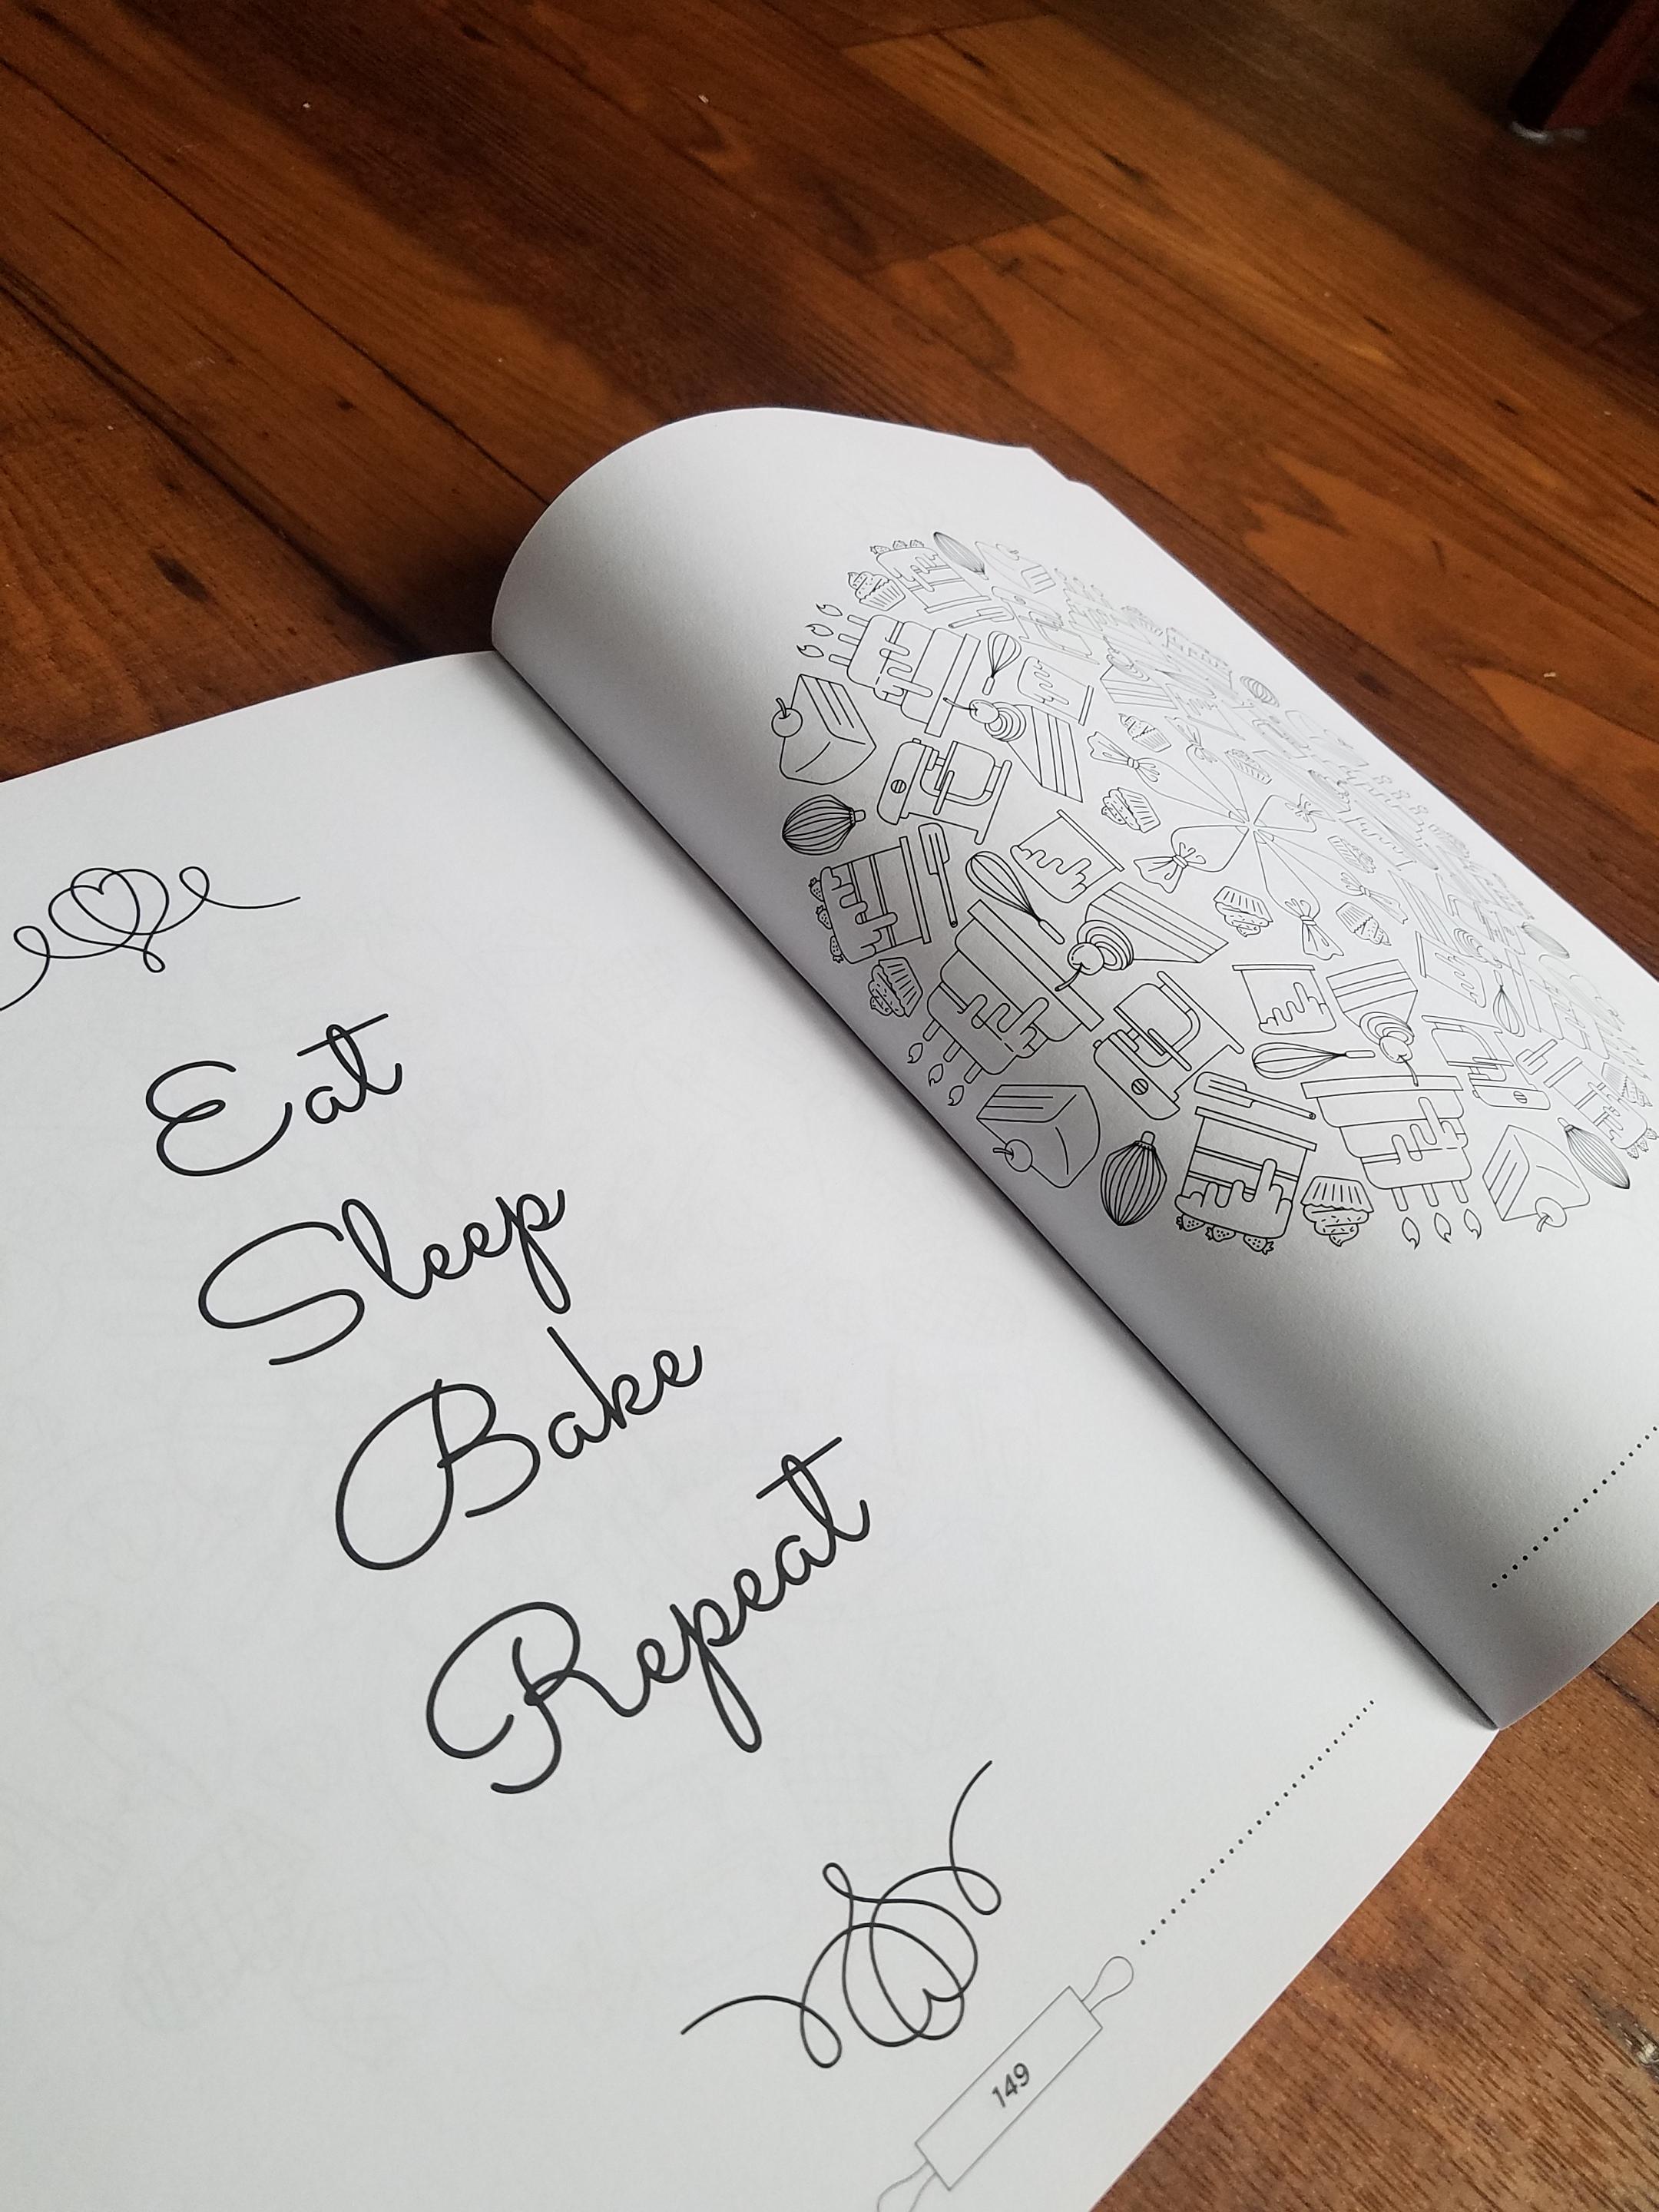 Eat
Sleep
Bake
Repeat
149